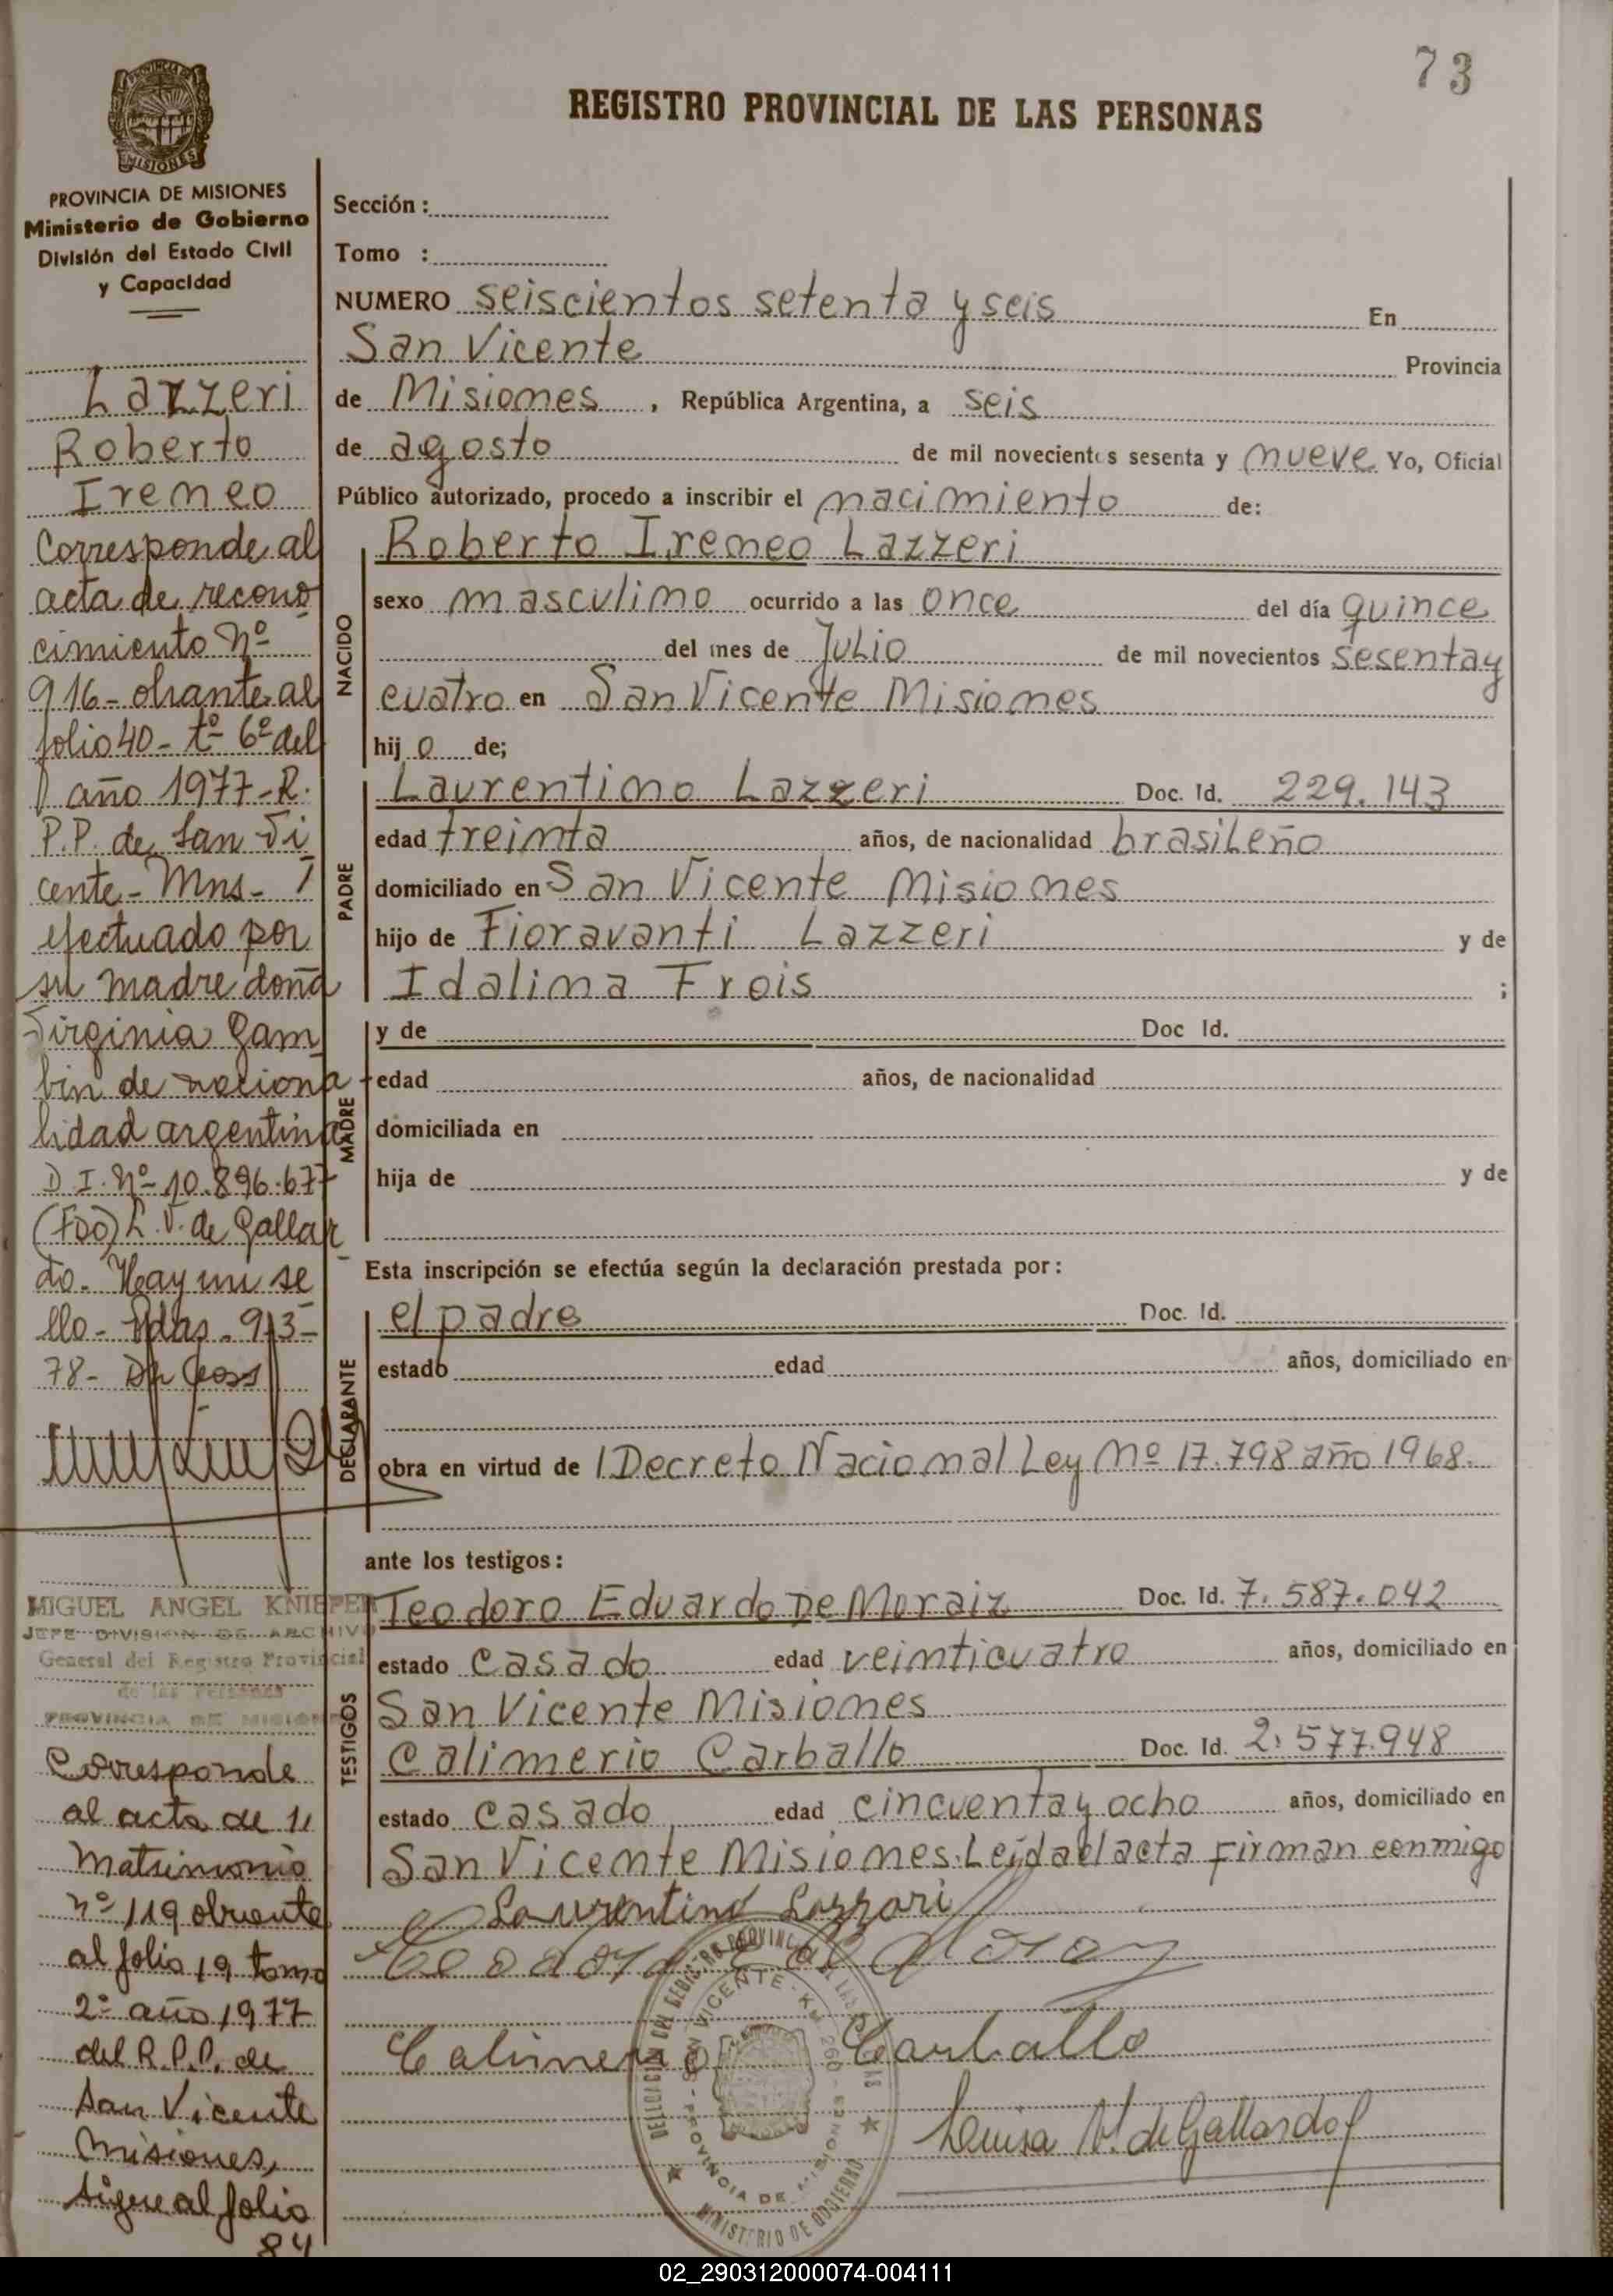 73
REGISTRO PROVINCIAL DE LAS PERSONAS
PROVINCIA DE MISIONES
Ministerio de Gobierno
División del Estado Civil
y Capacidad
Lazzeri
Roberto
Ireneo
Corresponde al
acta de recono
cimiento Nº
916 - obrante al
folio 40 - tº 6º del
año 1977 - R.
P.P. de San Vi
cente - Mns -
efectuado por
su madre doña
Virginia Gam
bin de naciona
lidad argentina
D I. Nº 10.896.677
(Fdo) L. V. de Gallar
do - Hay un se
llo - Pdas - 9/3 -
78 -
MIGUEL ANGEL KNIEPER
JEFE DIVISION DE ARCHIVO
General del Registro Provincial
de las Personas
PROVINCIA DE MISIONES
Corresponde
al acta de
matrimonio
nº 119 obrante
al folio 19 tomo
2º año 1977
del R.P.P. de
San Vicente
Misiones,
sigue al folio
84
Sección :
Tomo :
NUMERO seiscientos setenta y seis En
San Vicente Provincia
de Misiones , República Argentina, a seis
de agosto de mil novecientos sesenta y nueve Yo, Oficial
Público autorizado, procedo a inscribir el nacimiento de:
NACIDO
Roberto Ireneo Lazzeri
sexo masculino ocurrido a las once del día quince
del mes de Julio de mil novecientos sesenta y
cuatro en San Vicente Misiones
hij o de;
PADRE
Laurentino Lazzeri Doc. Id. 229.143
edad treinta años, de nacionalidad brasileño
domiciliado en San Vicente Misiones
hijo de Fioravanti Lazzeri y de
Idalina Frois ;
MADRE
y de Doc Id.
edad años, de nacionalidad
domiciliada en
hija de y de
Esta inscripción se efectúa según la declaración prestada por :
DECLARANTE
el padre Doc. Id.
estado edad años, domiciliado en
obra en virtud de l Decreto Nacional Ley Nº 17.798 año 1968.
ante los testigos :
TESTIGOS
Teodoro Eduardo De Moraiz Doc. Id. 7.587.042
estado casado edad veinticuatro años, domiciliado en
San Vicente Misiones
Calimerio Carballo Doc. Id. 2.577.948
estado casado edad cincuenta y ocho años, domiciliado en
San Vicente Misiones. Leída el acta firman conmigo
Laurentino Lazzari
Calimerio Carballo
Luisa V. de Gallardo
DELEGACION DEL REGISTRO PROVINCIAL DE LAS PERSONAS
SAN VICENTE - KM 260 - PROVINCIA DE MISIONES
MINISTERIO DE GOBIERNO
02_290312000074-004111